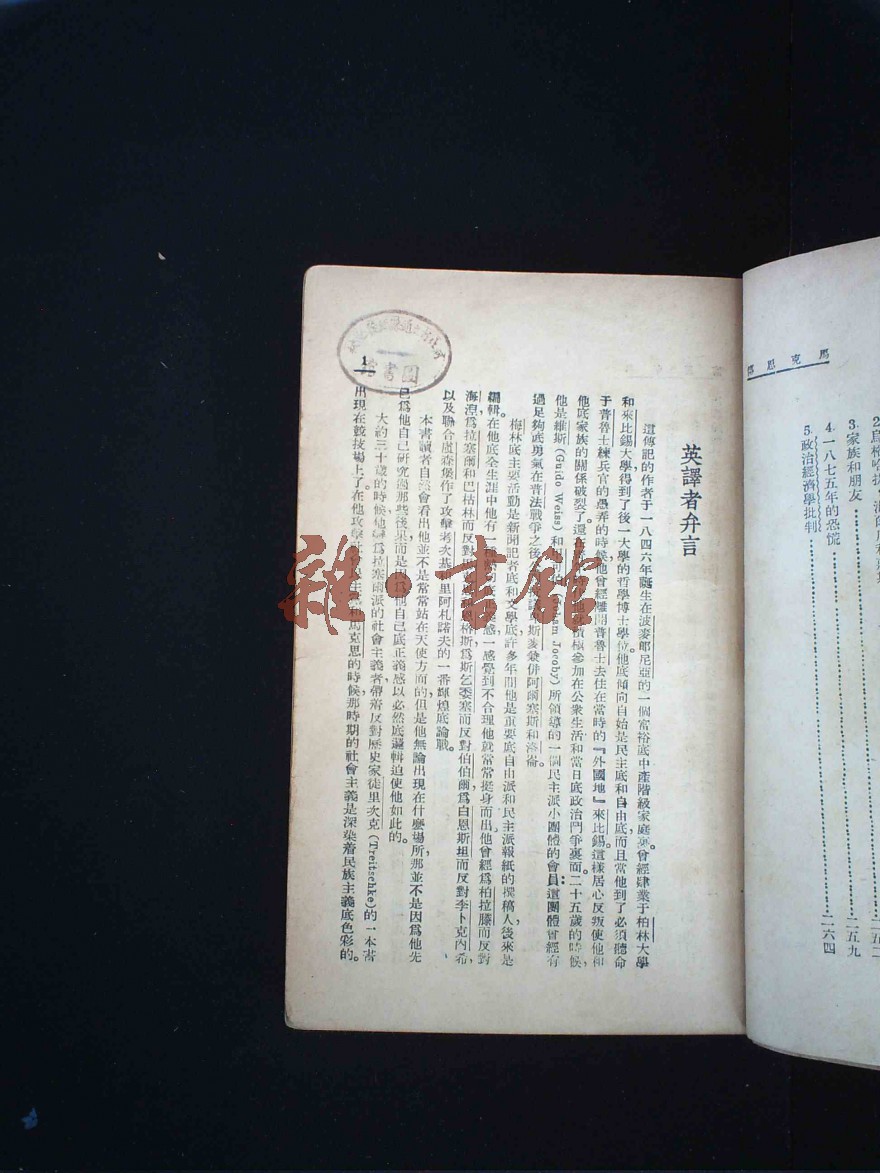 馬克思傳
3. 家族和朋友……二五九
4. 一八七五年的恐慌
5. 政治經濟學批判……二六四
英譯者弁言
這傳記的作者于一八四六年誕生在波麥郎尼亞的一個富裕底中產階級家庭。曾經肄業于柏林大學
和來比錫大學，得到了後一大學的哲學博士學位。他底傾向自始是民主底和自由底，而且當他到了必須聽命
于普魯士練兵官的愚弄的時候，他曾經離開普魯士去住在當時的『外國地』來比錫。這樣居心反叛使他和
他底家族的關係破裂了。還在 時他就積極參加在公衆生活和當日底政治鬥爭裏面。二十五歲的時候
他是維斯(Guido Weiss)和 (Johann Jocoby)所領導的一個民主派小團體的會員；這團體曾經有
過足夠底勇氣在普法戰爭之後 斯麥兼併阿爾塞斯和洛崙。
梅林底主要活動是新聞記者底和文學底。許多年間他是重要底自由派和民主派報紙的撰稿人，後來是
編輯。在他底全生涯中他有一種 感，一感覺到不合理他就常常挺身而出。他曾經爲柏拉滕而反對
海涅，爲拉塞爾和巴枯林而反對 格斯，爲斯乞委塞而反對伯伯爾，爲白恩斯坦而反對李卜克內希，
以及聯合盧森堡作了攻擊考次基 里阿札諾夫的一番輝煌底論戰。
本書讀者自然會看出他並不是常常站在天使方面的，但是他無論出現在什麼場所，那並不是因爲他先
已爲他自己研究過那些後果，而是因爲他自己底正義感以必然底邏輯迫使他如此的。
大約三十歲的時候他 爲拉塞爾派的社會主義者，帶着反對歷史家徒里次克(Treitschke)的一本書
出現在競技場上了。在他攻擊 主義和馬克思的時候，那時期的社會主義是深染着民族主義底色彩的。
1
圖書
雜·書館